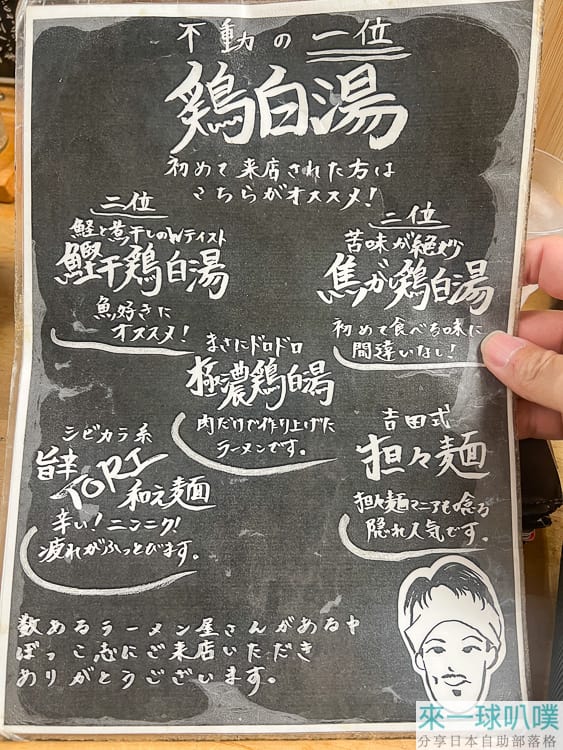 不動の一位
鶏白湯
初めて来店された方は
こちらがオススメ！
三位
鰹と煮干しのWテイスト
鰹干鶏白湯
魚好きに
オススメ！
二位
苦味が絶妙
焦がし鶏白湯
初めて食べる味に
間違いなし！
まさにドロドロ
極濃鶏白湯
肉だけで作り上げた
ラーメンです。
シビカラ系
旨辛
TORI
和え麺
辛い！ニンニク！
疲れがふっとびます。
吉田式
担々麺
担々麺マニアも唸る
隠れ人気です。
数あるラーメン屋さんがある中
ぼっこ志にご来店いただき
ありがとうございます。
來一球叭噗
分享日本自助部落格